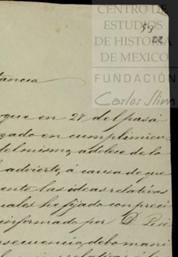 CENTRO DE
ESTUDIOS
DE HISTORIA
DE MEXICO
FUNDACIÓN
Carlos Slim
tancia
que en 28 del pasa
gado en cumplimien
del mismo, adolece de lo
advierte, á causa de que
ente las ideas relativas
uales he fijado con preci
informado por D. José
secuencia, de lo mani